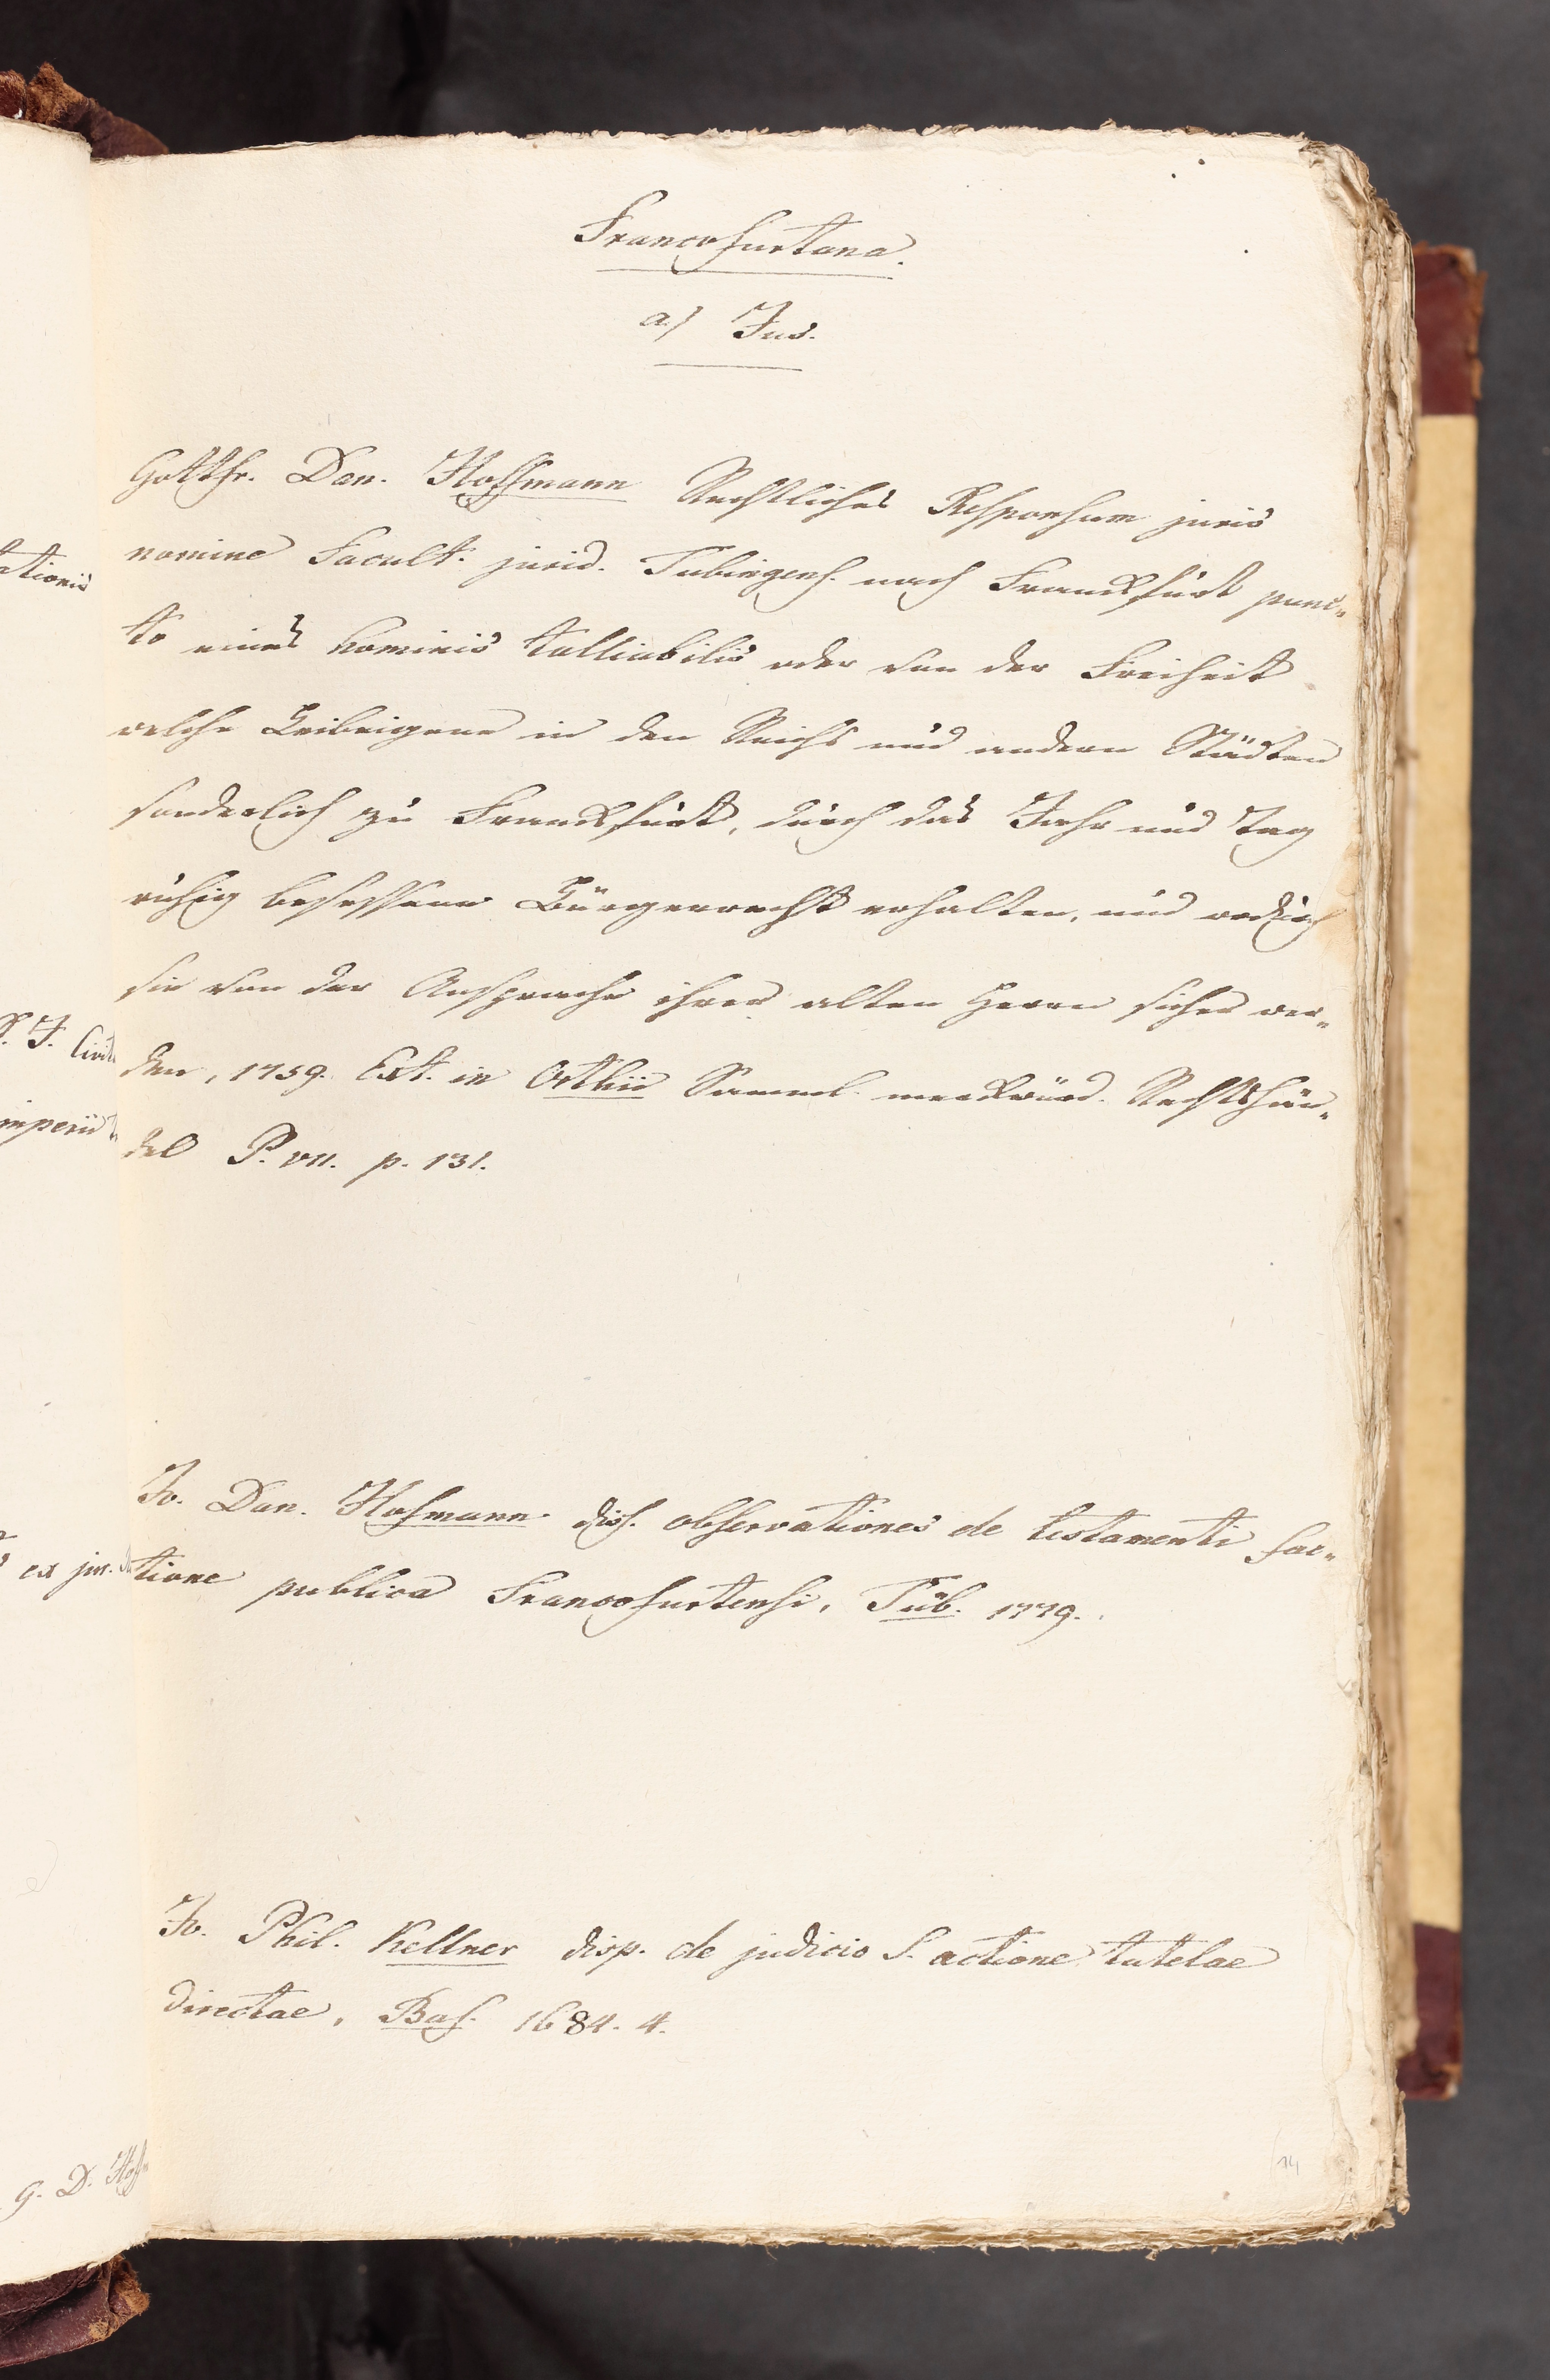 Francofurtana.
a) Jus.
Gottfr. Dan. Hoffmann Rechtliches Responsum juris
nomine Facult. jurid. Tubingens. nach Franckfurt punc-
to eines hominis talliabilis oder von der Freiheit
welche Leibeigene in den Reichs und andern Städten
sonderlich zu Franckfurt, durch das Jahr und Tag
ruhig besessene Bürgerrecht erhalten, und wodurch
sie von der Ansprache ihrer alten Herren sicher wer-
den, 1759. Ext. in Orthii Samml. merckwürd. Rechtshän-
del P. VII. p. 131.
Jo. Dan. Hofmann diss. observationes de testamenti fac-
tione publica Francofurtensi, Tüb. 1779.
Jo. Phil. Kellner disp. de judicio s. actione tutelae
directae, Bas. 1684. 4.
14
ationis
S. J. Civit
imperii
ex jur.
G. D. Hoff